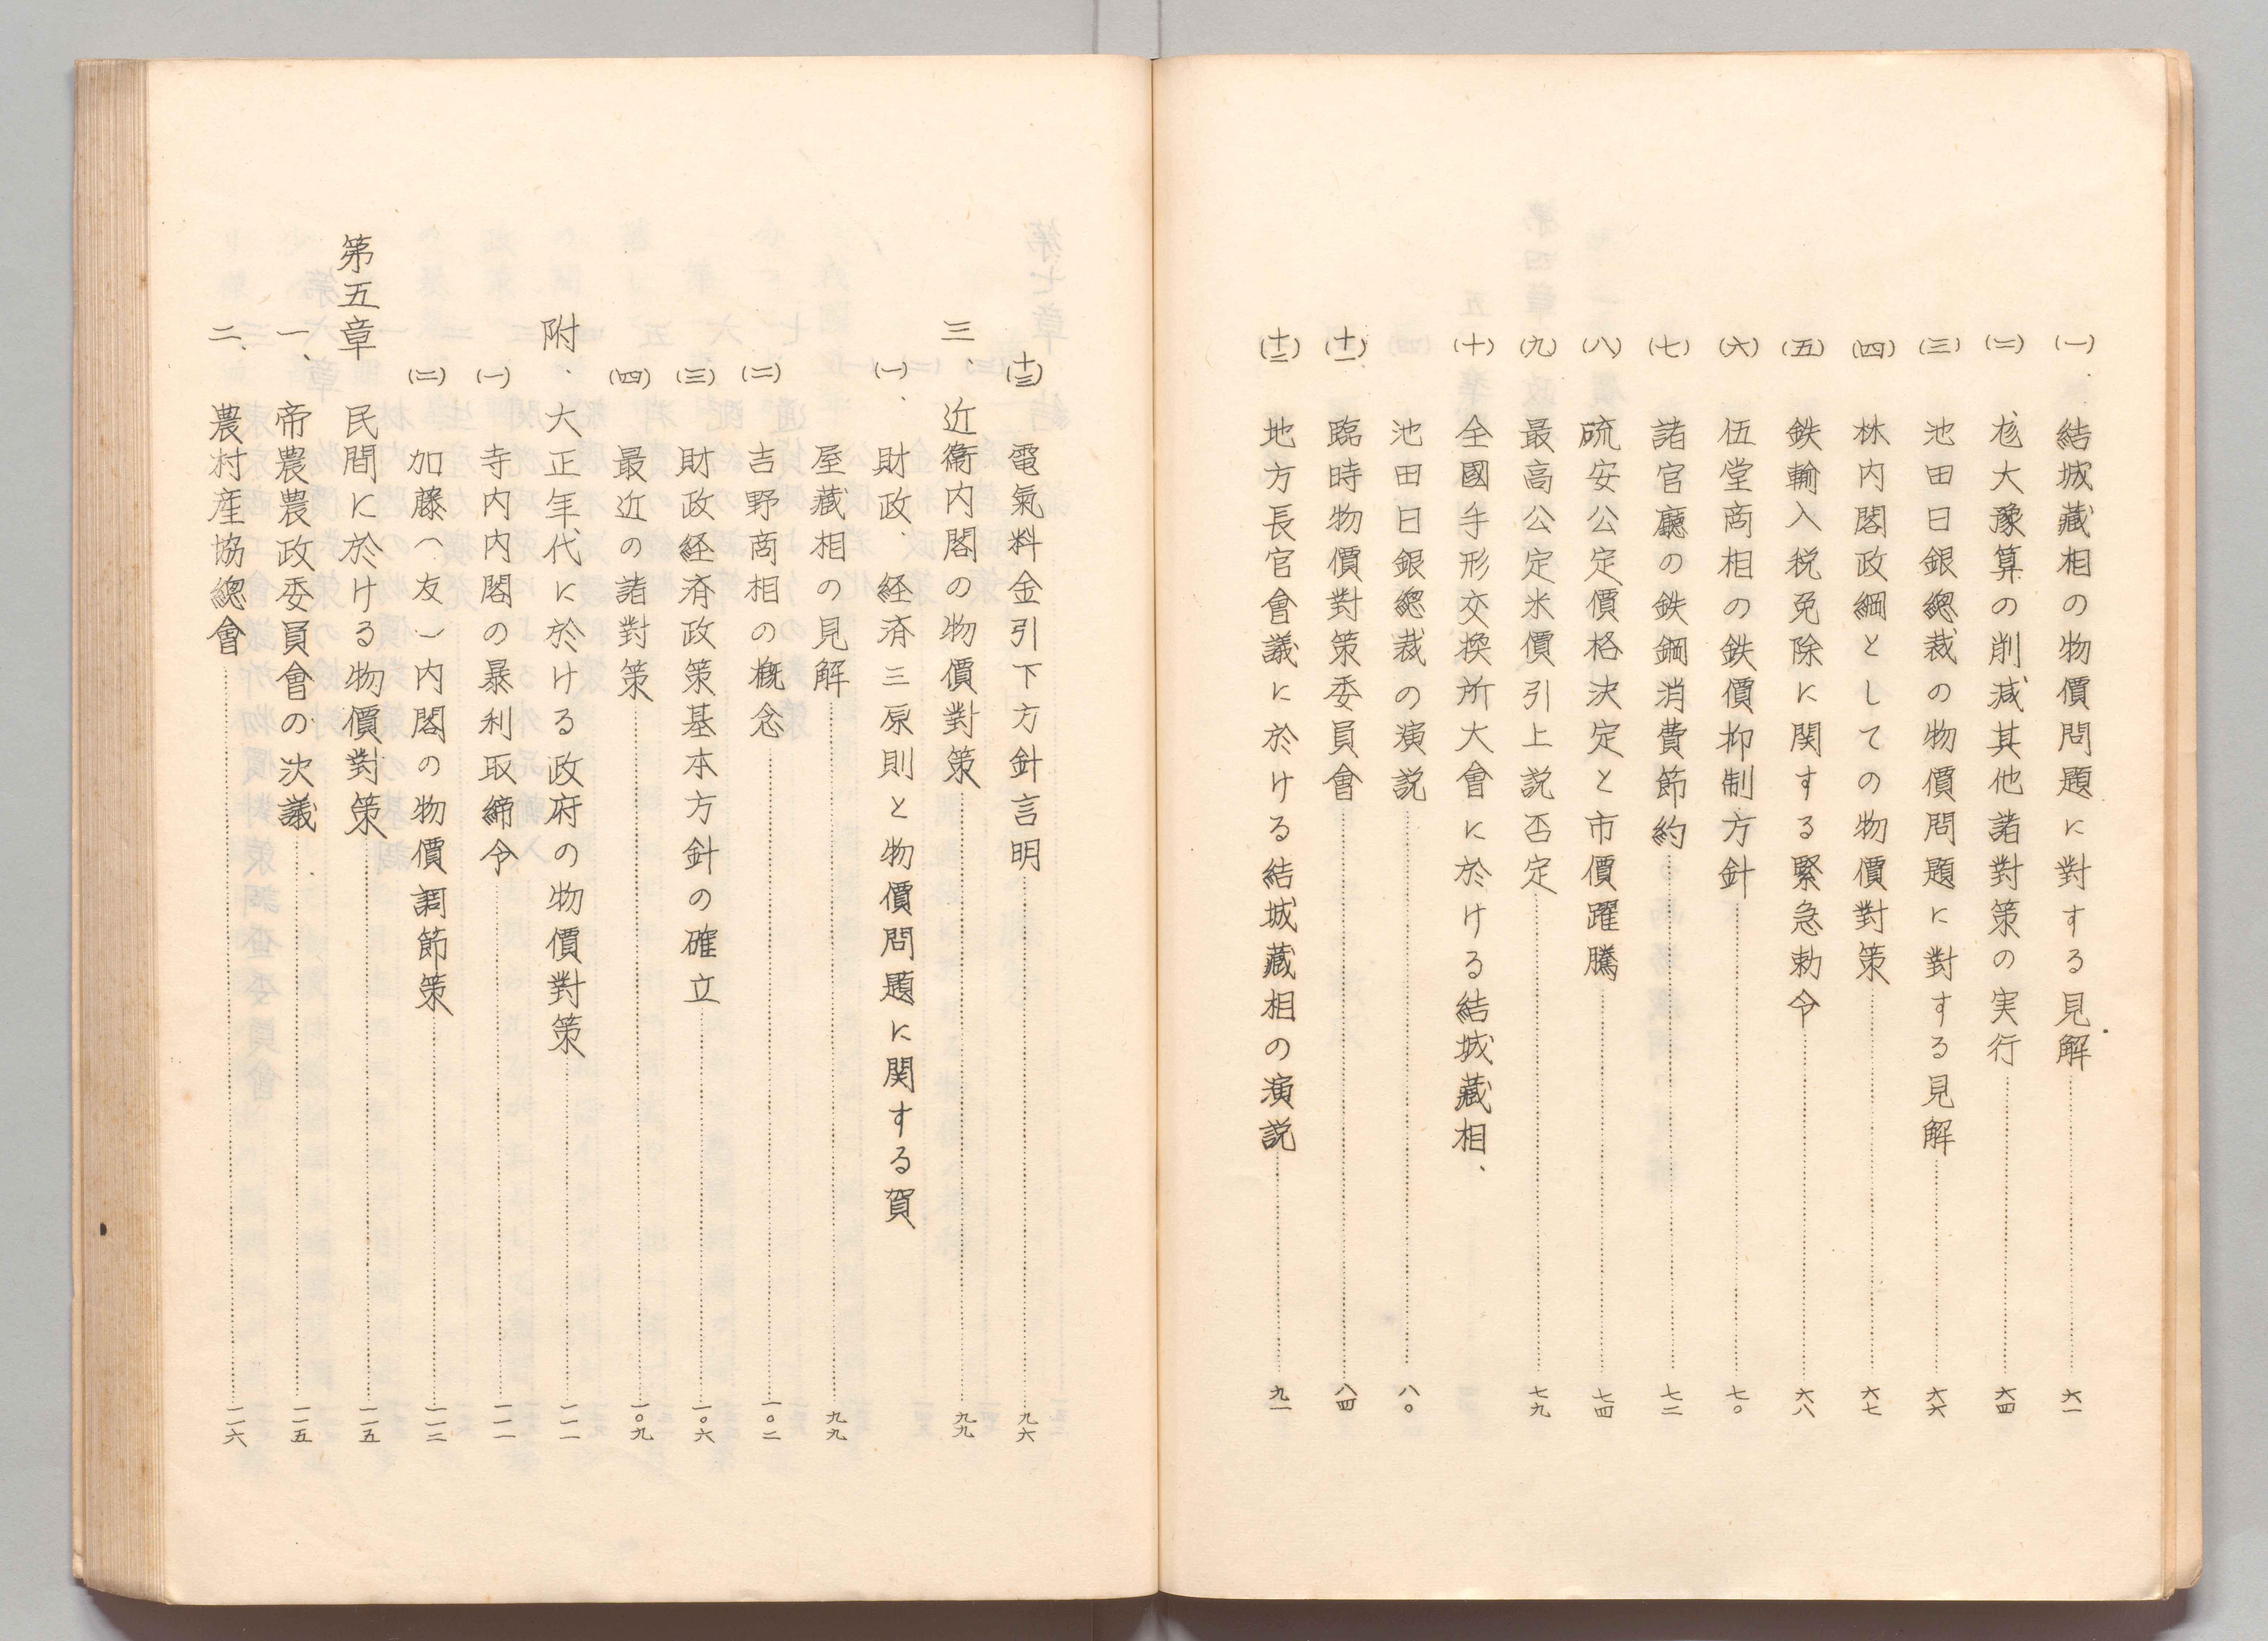 (一) 結城藏相の物價問題に對する見解 六一
(二) 尨大豫算の削減其他諸對策の実行 六四
(三) 池田日銀總裁の物價問題に對する見解 六六
(四) 林内閣政綱としての物價對策 六七
(五) 鉄輸入税免除に関する緊急勅令 六八
(六) 伍堂商相の鉄價抑制方針 七〇
(七) 諸官廳の鉄鋼消費節約 七二
(八) 硫安公定價格決定と市價躍騰 七四
(九) 最高公定米價引上説否定 七九
(十) 全國手形交換所大會に於ける結城藏相、
池田日銀總裁の演説 八〇
(十一) 臨時物價對策委員會 八四
(十二) 地方長官會議に於ける結城藏相の演説 九一
(十三) 電氣料金引下方針言明 九六
三、近衞内閣の物價對策 九九
(一)、財政、経済三原則と物價問題に関する賀
屋藏相の見解 九九
(二) 吉野商相の概念 一〇二
(三) 財政経済政策基本方針の確立 一〇六
(四) 最近の諸對策 一〇九
附、大正年代に於ける政府の物價對策 一一一
(一) 寺内内閣の暴利取締令 一一一
(二) 加藤(友)内閣の物價調節策 一一二
第五章 民間に於ける物價對策 一一五
一、帝農農政委員會の決議 一一五
二、農村産協總會 一一六